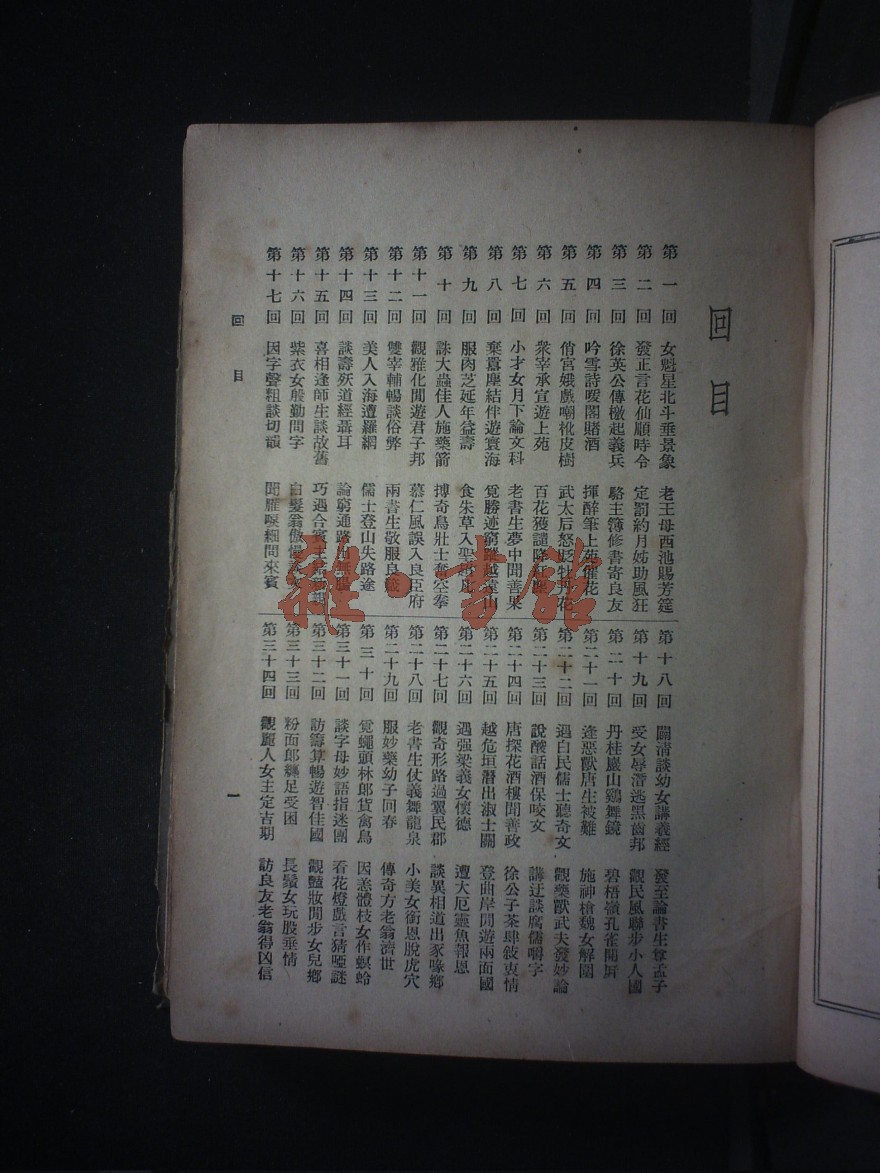 回目
第一回 女魁星北斗垂景象 老王母西池賜芳筵
第二回 發正言花仙順時令 定罰約月姊助風狂
第三回 徐英公傳檄起義兵 駱主簿修書寄良友
第四回 吟雪詩暖閣賭酒 揮醉筆上苑催花
第五回 俏宮娥戲嘲枇皮樹 武太后怒貶牡丹花
第六回 衆宰承宣遊上苑 百花獲譴降紅塵
第七回 小才女月下論文科 老書生夢中聞善果
第八回 棄囂塵結伴遊寰海 覓勝迹窮蹤越遠山
第九回 服肉芝延年益壽 食朱草入聖超凡
第十回 誅大蟲佳人施藥箭 搏奇鳥壯士奮空拳
第十一回 觀雅化閒遊君子邦 慕仁風誤入良臣府
第十二回 雙宰輔暢談俗弊 兩書生敬服良箴
第十三回 美人入海遭羅網 儒士登山失路途
第十四回 談壽殀道經聶耳 論窮通路出無腸
第十五回 喜相逢師生談故舊 巧遇合賓主
第十六回 紫衣女殷勤問字 白髮翁傲慢
第十七回 因字聲粗談切韻 聞雁唳細問來賓
第十八回 闢清談幼女講義經 發至論書生尊孟子
第十九回 受女辱潛逃黑齒邦 觀民風聯步小人國
第二十回 丹桂巖山鷄舞鏡 碧梧嶺孔雀開屏
第二十一回 逢惡獸唐生被難 施神槍魏女解圍
第二十二回 遇白民儒士聽奇文 觀藥獸武夫發妙論
第二十三回 說酸話酒保咬文 講迂談腐儒嚼字
第二十四回 唐探花酒樓聞善政 徐公子茶肆敍衷情
第二十五回 越危垣潛出淑士關 登曲岸閒遊兩面國
第二十六回 遇强梁義女懷德 遭大厄靈魚報恩
第二十七回 觀奇形路過翼民郡 談異相道出豕喙鄉
第二十八回 老書生仗義舞龍泉 小美女銜恩脫虎穴
第二十九回 服妙藥幼子回春 傳奇方老翁濟世
第三十回 覓蠅頭林郎貨禽鳥 因恙體枝女作螟蛉
第三十一回 談字母妙語指迷團 看花燈戲言猜啞謎
第三十二回 訪籌算暢遊智佳國 觀豔妝閒步女兒鄉
第三十三回 粉面郎纏足受困 長鬚女玩股垂情
第三十四回 觀麗人女主定吉期 訪良友老翁得凶信
回目
一
雜·書館